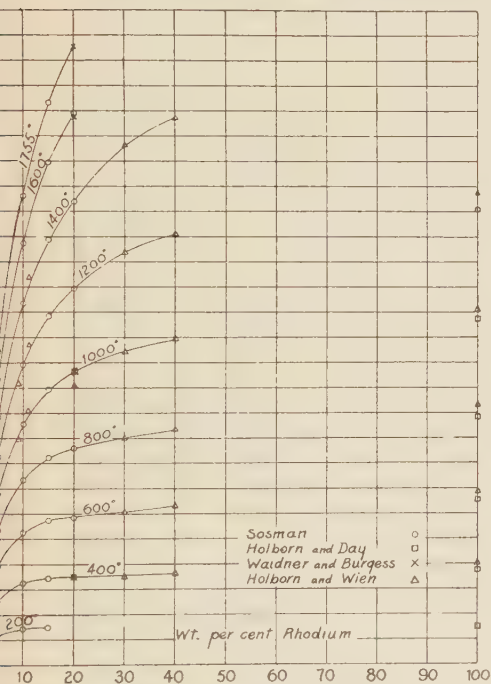 1755°
1600°
1400°
1200°
1000°
800°
600°
400°
200°
Sosman ○
Holborn and Day □
Waidner and Burgess ×
Holborn and Wien △
Wt. per cent Rhodium
10 20 30 40 50 60 70 80 90 100